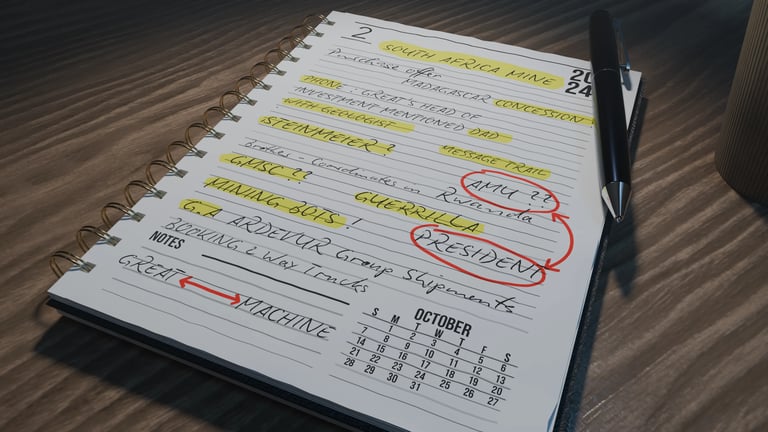 2 SOUTH AFRICA MINE 20 24
Purchase offer
MADAGASCAR CONCESSION
PHONE: GREAT'S HEAD OF
INVESTMENT MENTIONED DAD
WITH GEOLOGIST
MESSAGE TRAIL
STEINMEIER?
Brothers - Coordinates in Rwanda
AMU ??
GMSC ??
GUERRILLA
MINING BOTS!
PRESIDENT
G.A ARDEVUR Group Shipments
BOOKING 2 Way Trucks
NOTES
GREAT MACHINE
OCTOBER
S M T W T F S
1 2 3 4 5 6
7 8 9 10 11 12 13
14 15 16 17 18 19 20
21 22 23 24 25 26 27
28 29 30 31